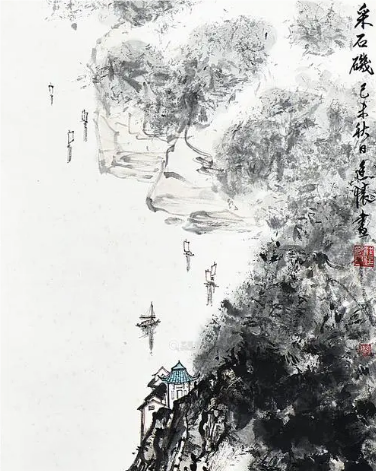 采石磯 己未秋日懷畫